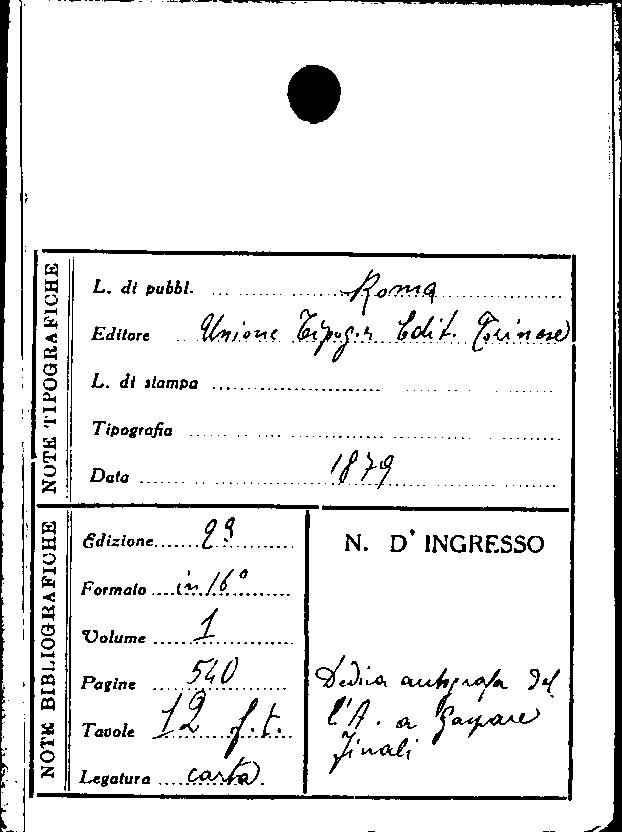 NOTE TIPOGRAFICHE
L. di pubbl. Roma
Editore Unione Tipogr. Edit. Torinese
L. di stampa
Tipografia
Data 1879
NOTE BIBLIOGRAFICHE
Edizione 2ª
Formato in 16°
Volume 1
Pagine 540
Tavole 12 f.t.
Legatura carta
N. D' INGRESSO
Dedica autografa del
l'A. a Gaspare
Finali